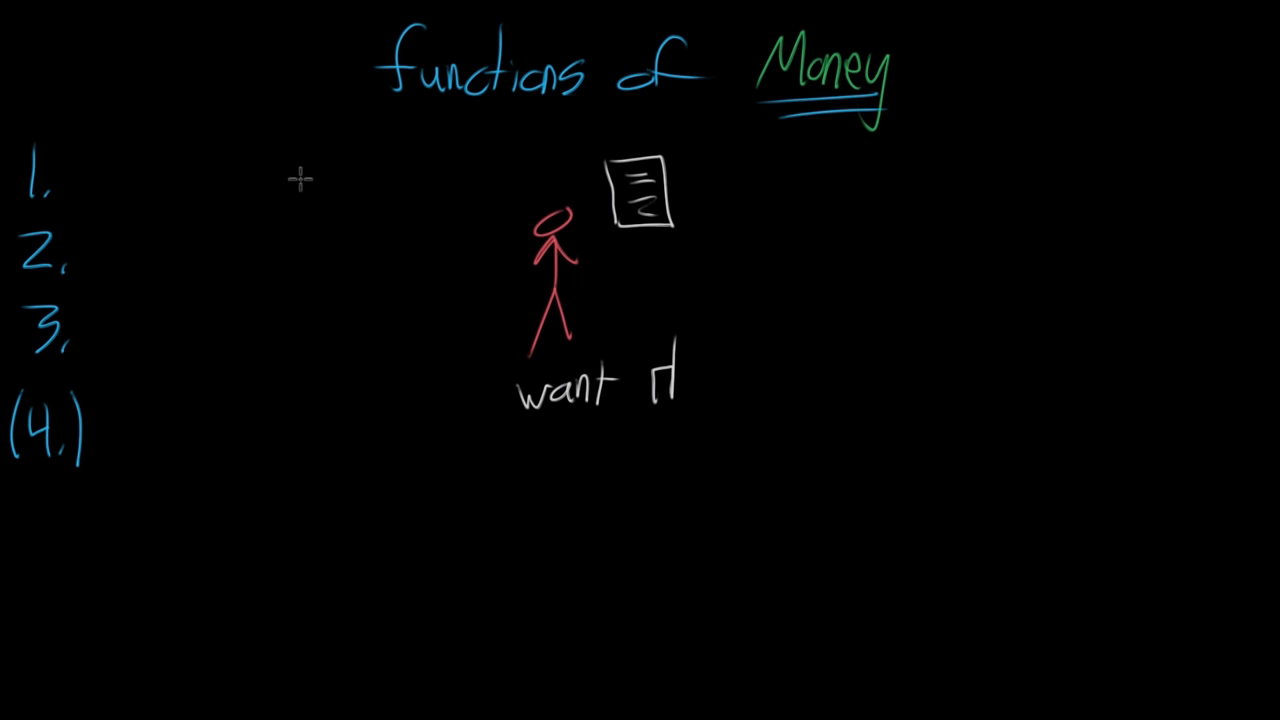 functions of Money
1.
2.
3.
(4.)
want